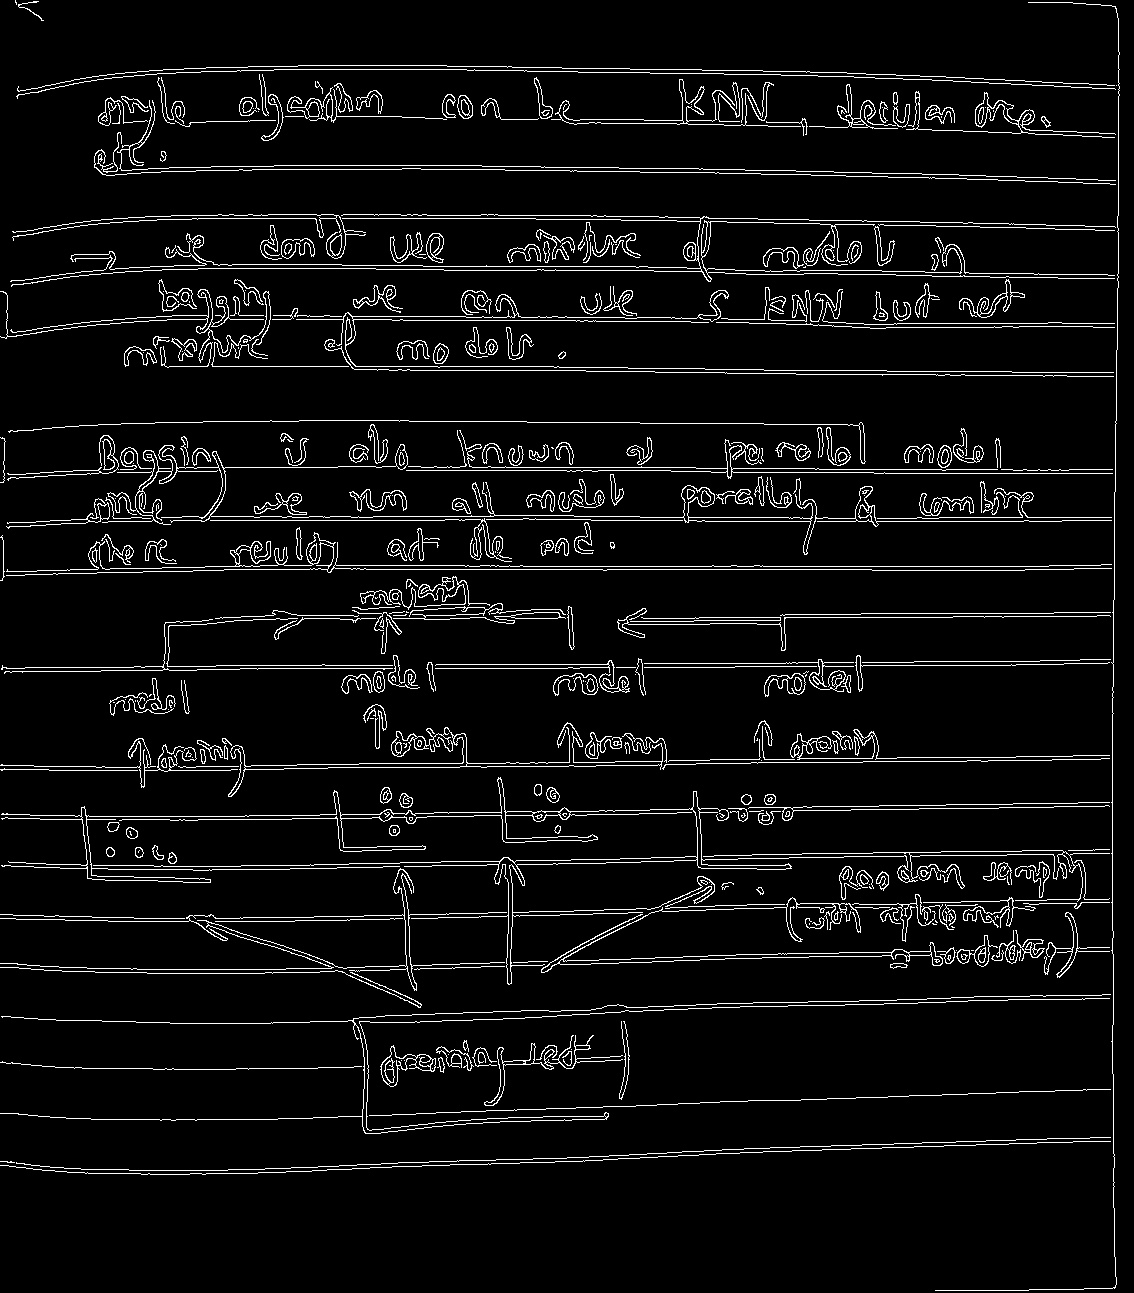 single algorithm can be KNN, decision tree.
etc.
→ we don't use mixture of models in
bagging, we can use 5 KNN but not
mixture of models.
Bagging is also known as parallel model
since we run all models parallely & combine
there results at the end.
majority
model model model model
training training training training
Random sampling
(with replacement
= bootstrap)
training set